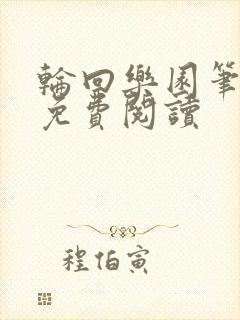 輪回樂園筆
免費閱讀
程伯寅